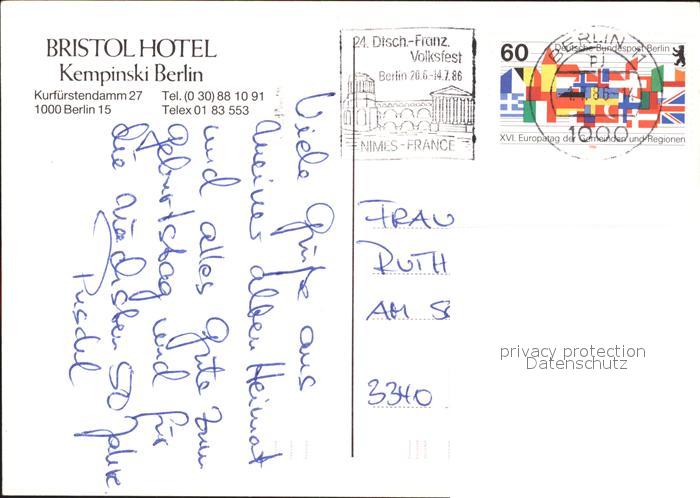 BRISTOL HOTEL
Kempinski Berlin
Kurfürstendamm 27 Tel. (0 30) 88 10 91
1000 Berlin 15 Telex 01 83 553
24. Dtsch.-Franz.
Volksfest
Berlin 20.6.-14.7.86
NIMES-FRANCE
BERLIN 11
1000
60 Deutsche Bundespost Berlin
XVI. Europatag der Gemeinden und Regionen
Viele Grüße aus
meiner alten Heimat
und alles Gute zum
Geburtstag und für
die nächsten 50 Jahre
FRAU
RUTH
AM
3340
privacy protection
Datenschutz